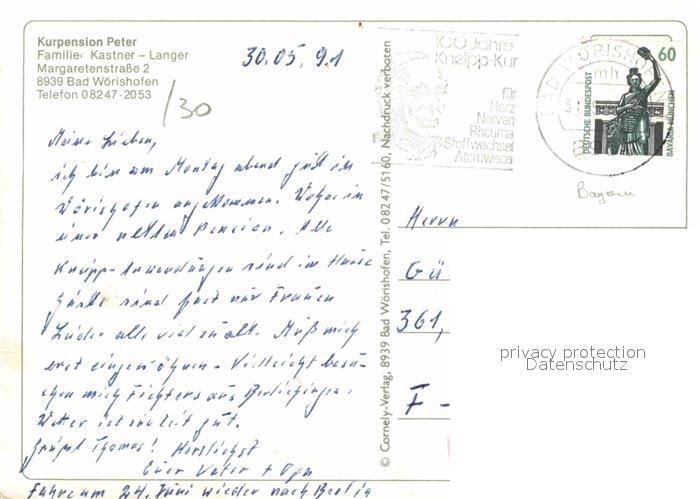 Kurpension Peter
Familie Kastner – Langer
Margaretenstraße 2
8939 Bad Wörishofen
Telefon 08247-2053
/30
30.05.91
Meine Lieben,
ich bin am Montag abend gut in
Wörishofen angekommen. Wohne in
einer netten Pension. Alle
Kneipp-Anwendungen sind im Hause
Gäste sind fast nur Frauen
Leider alle viel zu alt. Muß mich
erst eingewöhnen - Vielleicht besu-
chen mich Fichters aus
Wetter ist zur Zeit gut.
Grüßt Thomas! Herzlichst
Euer Vater + Opa
Fahre am 24. Juni wieder nach Berlin
© Cornely-Verlag, 8939 Bad Wörishofen, Tel. 08247/5160, Nachdruck verboten
100 Jahre
Kneipp-Kur
für
Herz
Nerven
Rheuma
Stoffwechsel
Atemwege
BAD WÖRISHOFEN
mh
60
DEUTSCHE BUNDESPOST
BAVARIA MÜNCHEN
Bayern
Herrn
Gü
361,
F -
privacy protection
Datenschutz